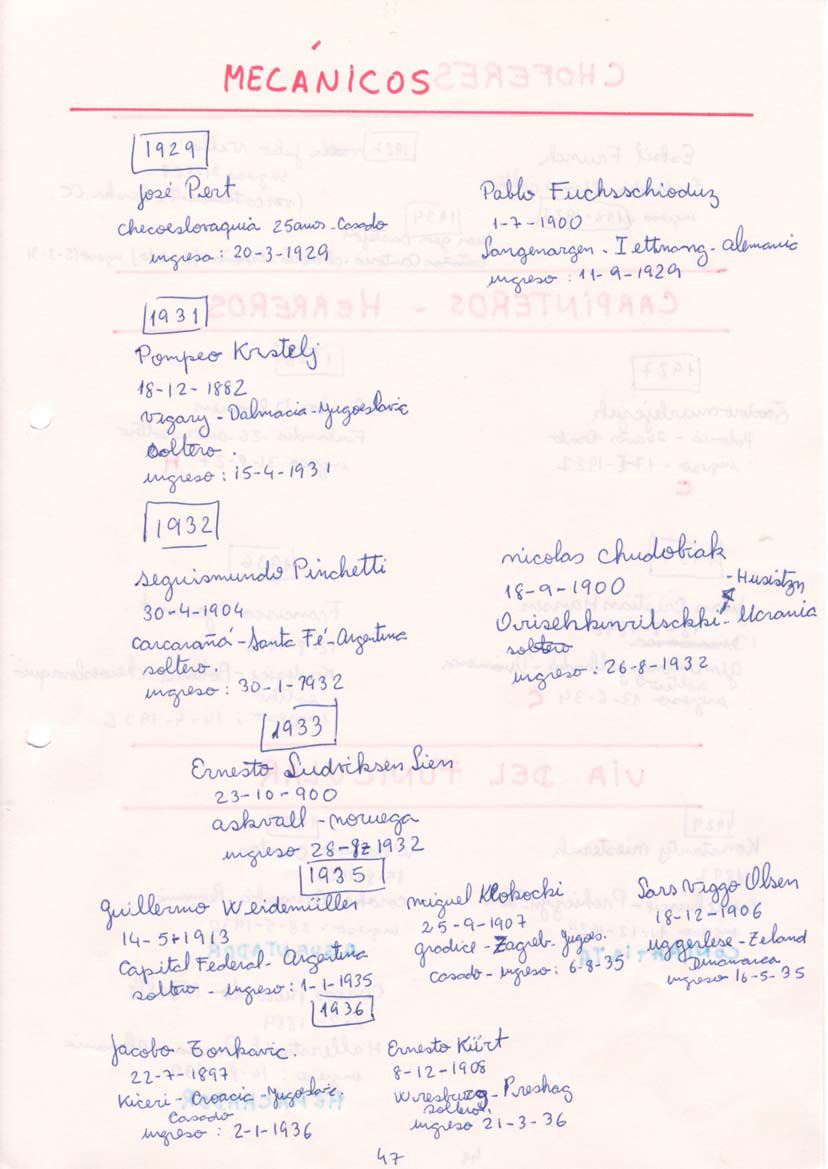 MECÁNICOS
1929
José Pert
checoeslovaquia 25 anos - Casado
ingresa : 20-3-1929
Pablo Fuchsschioduz
1-7-1900
Langenargen - Iettnang - Alemania
ingreso : 11-9-1929
1931
Pompeo Krstelj
18-12-1882
Vigary - Dalmacia - Yugoeslavic
soltero.
ingreso : 15-4-1931
1932
Seguismundo Pinchetti
30-4-1904
Carcarañá - Santa Fé - Argentina
soltero.
ingreso : 30-1-1932
nicolas chudobiak
18-9-1900
- Husistzn
- Ucrania
soltero
ingreso : 26-8-1932
1933
Ernesto Ludviksen Lien
23-10-900
askvall - noruega
ingreso 28-8-1932
1935
Guillermo Weidemüller
14-5-1913
Capital Federal - Argentina
soltero - ingreso : 1-1-1935
miguel Klokocki
25-9-1907
gradice - Zagreb - Jugos.
Casado - ingreso : 6-8-35
Lars Viggo Olsen
18-12-1906
uggerlese - Zeland
Dinamarca
ingreso 16-5-35
1936
Jacobo Tonkavic.
22-7-1897
Kiceri - Croacia - Yugoslavic
Casado
ingreso : 2-1-1936
Ernesto Kürt
8-12-1908
Wresburg - Preshag
soltero.
ingreso 21-3-36
47